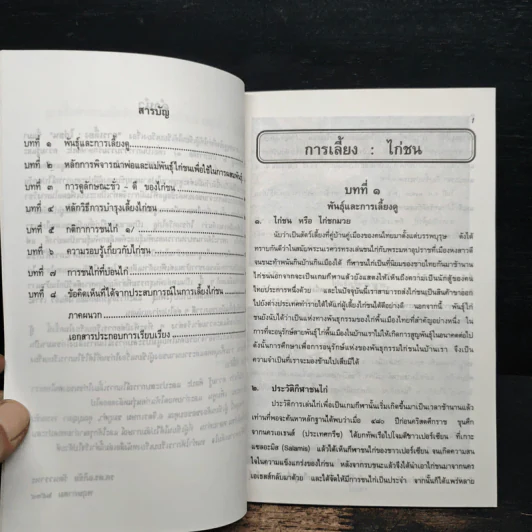 สารบัญ
บทที่ ๑ พันธุ์และการเลี้ยงดู
บทที่ ๒ หลักการพิจารณาพ่อและแม่พันธุ์ไก่ชนเพื่อใช้ในการผสมพันธุ์
บทที่ ๓ การดูลักษณะชั่ว - ดี ของไก่ชน
บทที่ ๔ หลักวิธีการบำรุงเลี้ยงไก่ชน
บทที่ ๕ กติกาการชนไก่ ๑/
บทที่ ๖ ความรอบรู้เกี่ยวกับไก่ชน
บทที่ ๗ การชนไก่ที่บ่อนไก่
บทที่ ๘ ข้อคิดเห็นที่ได้จากประสบการณ์ในการเลี้ยงไก่ชน
ภาคผนวก
เอกสารประกอบการเรียบเรียง
การเลี้ยง : ไก่ชน
บทที่ ๑
พันธุ์และการเลี้ยงดู
๑. ไก่ชน หรือ ไก่ชกมวย
นับว่าเป็นสัตว์เลี้ยงที่คู่บ้านคู่เมืองของคนไทยมาตั้งแต่บรรพบุรุษ ดังได้
ทราบกันดีว่าในสมัยพระนเรศวรทรงเล่นชนไก่กับพระมหาอุปราชที่เมืองหงสาวดี
จนชนะทำพนันกินบ้านกินเมืองได้ กีฬาชนไก่เป็นที่นิยมของชายไทยกันมาช้านาน
ไก่ชนนอกจากจะเป็นเกมกีฬาแล้วยังแสดงให้เห็นถึงความเป็นนักสู้ของคน
ไทยประการหนึ่งด้วย และในปัจจุบันนี้เราสามารถส่งไก่ชนเป็นสินค้าขาออก
ไปยังต่างประเทศทำรายได้ให้แก่ผู้เลี้ยงไก่ชนได้ดีอย่างดี นอกจากนี้ พันธุ์ไก่
ชนยังนับได้ว่าเป็นแห่งทางพันธุกรรมของไก่พื้นเมืองไทยที่สำคัญอย่างหนึ่ง ใน
การที่จะอนุรักษ์สายพันธุ์ไก่พื้นเมืองในบ้านเราไม่ให้เกิดการสูญพันธุ์ในอนาคตต่อไป
ดังนั้นการศึกษาเพื่อการอนุรักษ์แห่งของพันธุกรรมไก่ชนในบ้านเรา จึงเป็น
ความจำเป็นที่เราจะมองข้ามไปเสียมิได้
๒. ประวัติกีฬาชนไก่
ประวัติการเล่นไก่เพื่อเป็นเกมกีฬานั้นเริ่มเกิดขึ้นมาเป็นเวลาช้านานแล้ว
เท่านที่พอจะค้นหาหลักฐานได้พบว่าเมื่อ ๔๘๐ ปีก่อนคริสตศักราช ขุนศึก
จากนครเอเธนส์ (ประเทศกรีซ) ได้ยกทัพเรือไปโจมตีชาวเปอร์เซียน ที่เกาะ
แซลอะมิส (Salamis) แล้วได้เห็นกีฬาชนไก่ของชาวเปอร์เซียน จนเกิดความสน
ใจในความแข็งแกร่งของไก่ชน หลังจากรบชนะแล้วจึงได้นำเอาไก่ชนมาจากนคร
เอเธสส์กลับมาด้วย และได้จัดให้มีการชนไก่เป็นประจำ จากนั้นก็ได้แพร่หลาย